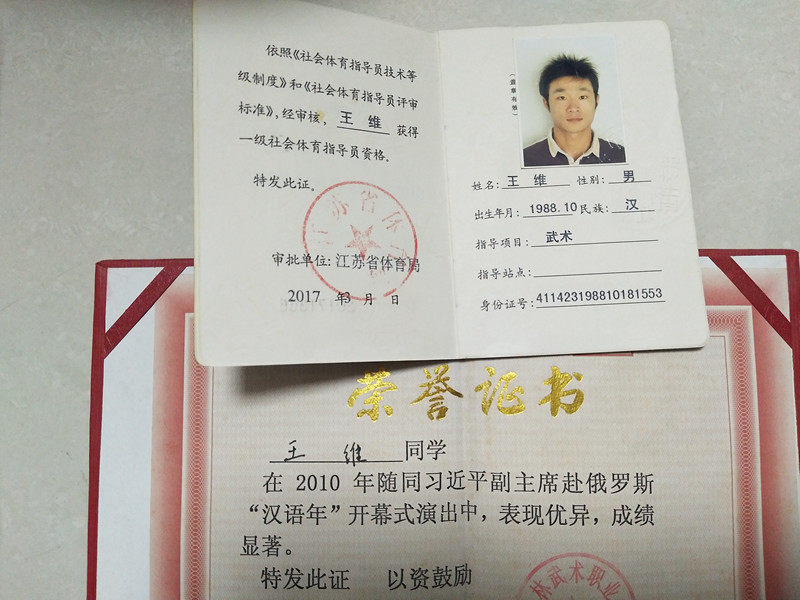 依照《社会体育指导员技术等
级制度》和《社会体育指导员评审
标准》，经审核，王 维 获得
一级社会体育指导员资格。
特发此证。
江苏省体
审批单位：江苏省体育局
2017 年3 月 日
（盖章有效）
姓名：王 维 性别：男
出生年月：1988.10 民族：汉
指导项目：武术
指导站点：
身份证号：411423198810181553
荣誉证书
王 维 同学
在 2010 年随同习近平副主席赴俄罗斯
“汉语年”开幕式演出中，表现优异，成绩
显著。
特发此证 以资鼓励
林武术职业